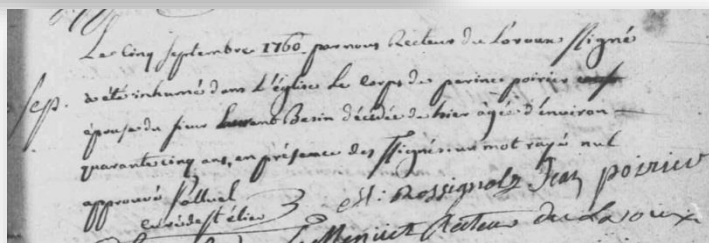 Le cinq septembre 1760. par nous Recteur du Loroux soussigné
sep.
a été inhumé dans l'église le corps de perinne poirier
épouse du sieur Laurent Basin décédée de hier âgée d'environ
quarante cinq ans, en présence des soussignés un mot rayé nul
approuvé
M. Rossignol Jean poirier
curé de St élier
Recteur du Loroux